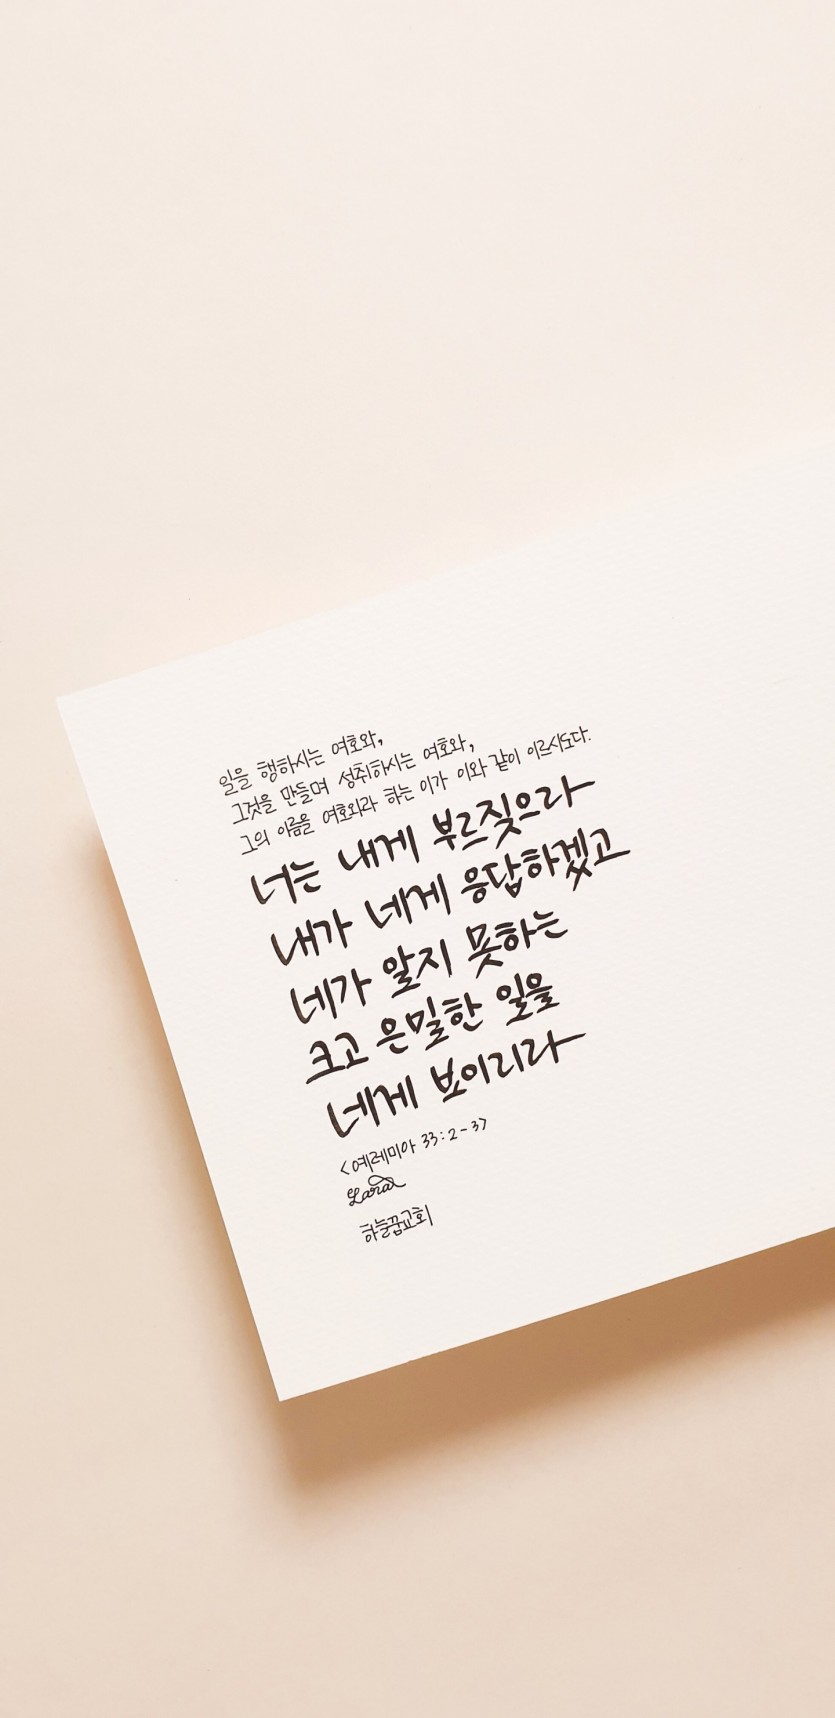 일을 행하시는 여호와,
그것을 만들며 성취하시는 여호와,
그의 이름을 여호와라 하는 이가 이와 같이 이르시도다.
너는 내게 부르짖으라
내가 네게 응답하겠고
네가 알지 못하는
크고 은밀한 일을
네게 보이리라
<예레미아 33:2-3>
Lara
하늘꿈교회